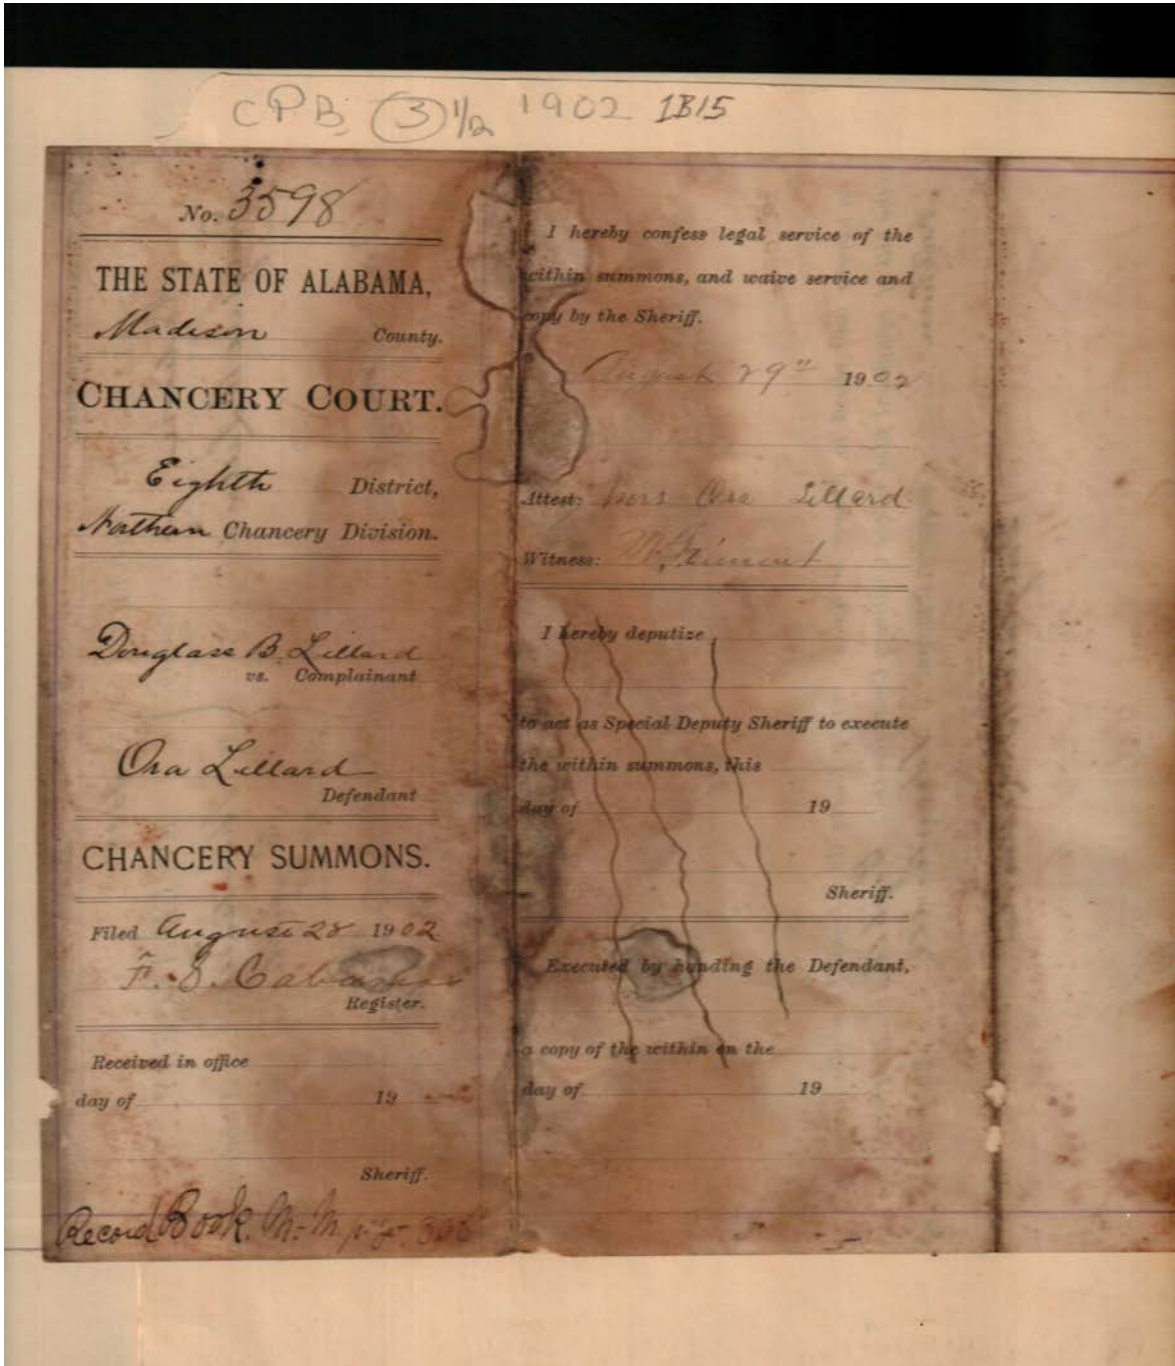 CPB (3) 1/2 1902 1B15
No. 3598
THE STATE OF ALABAMA,
Madison County.
CHANCERY COURT.
Eighth District,
Northern Chancery Division.
Douglass B. Lillard
vs. Complainant
Ora Lillard
Defendant
CHANCERY SUMMONS.
Filed August 28 1902
F. S.
Register.
Received in office
day of 19
Sheriff.
Record Book. M-M
I hereby confess legal service of the
within summons, and waive service and
copy by the Sheriff.
August 29th 1902
Attest: Ora Lillard
Witness:
I hereby deputize
to act as Special Deputy Sheriff to execute
the within summons, this
day of 19
Sheriff.
Executed by handing the Defendant,
a copy of the within on the
day of 19